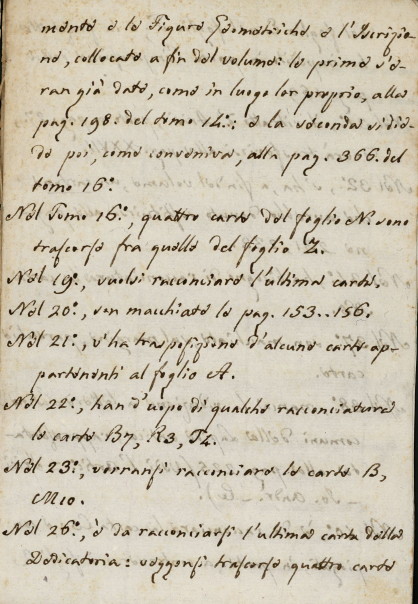 mente e le Figure Geometriche e l'Iscrizio-
ne, collocate a fin del volume: le prime s'e-
ran già date, come in luogo lor proprio, alla
pag. 198. del tomo 14.º; e la seconda si die-
de poi, come conveniva, alla pag. 366. del
tomo 16.º
Nel Tomo 16.º, quattro carte del foglio N. sono
trascorse fra quelle del foglio Z.
Nel 19.º, vuolsi racconciare l'ultima carta.
Nel 20.º, son macchiate le pag. 153..156.
Nel 21.º, v'ha trasposizione d'alcune carte ap-
partenenti al foglio A.
Nel 22.º, han d'uopo di qualche racconciatura
le carte B7, R3, T4.
Nel 23.º, vorransi racconciare le carte B,
M10.
Nel 26.º, è da racconciarsi l'ultima carta della
Dedicatoria: veggonsi trascorse quattro carte